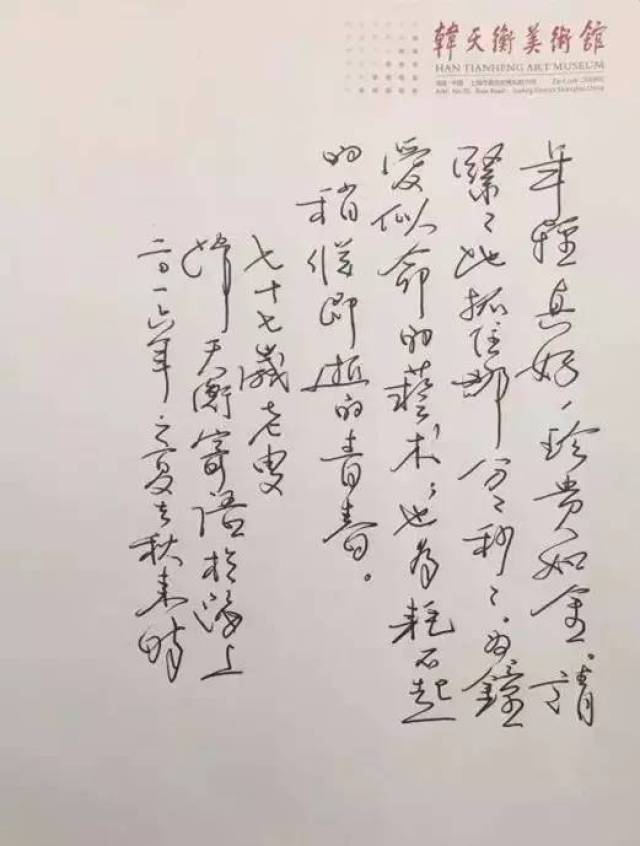 韓天衡美術館
HAN TIANHENG ART MUSEUM
年轻真好，珍贵如金。请
紧紧地抓住那分分秒秒。为鍾
爱似命的藝术，也为耗不起
的稍纵即逝的青春。
七十七歲老叟
韓天衡寄语於海上
二〇一六年之夏去秋来時